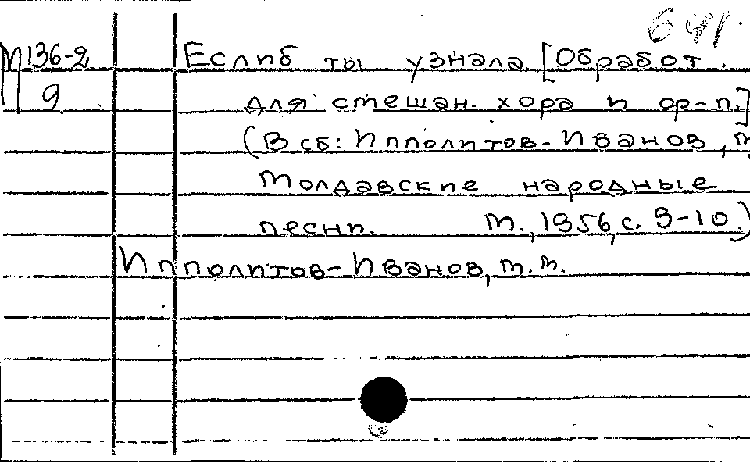 641.
М136-2 Еслиб ты узнала [Обработ.
9 для смешан. хора и ор-п.]
(В сб: Ипполитов-Иванов, М
Молдавские народные
песни. М., 1956, с. 9-10.)
Ипполитов-Иванов, М. М.